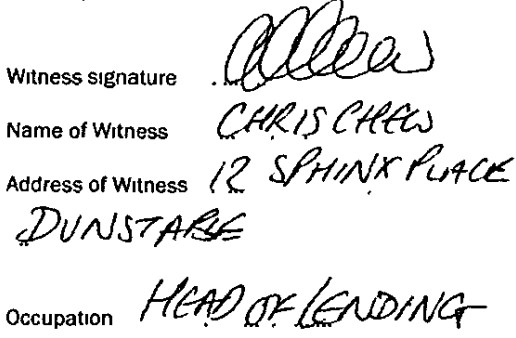 Witness signature
Name of Witness CHRIS CHEW
Address of Witness 12 SPHINX PLACE
DUNSTABLE
Occupation HEAD OF LENDING